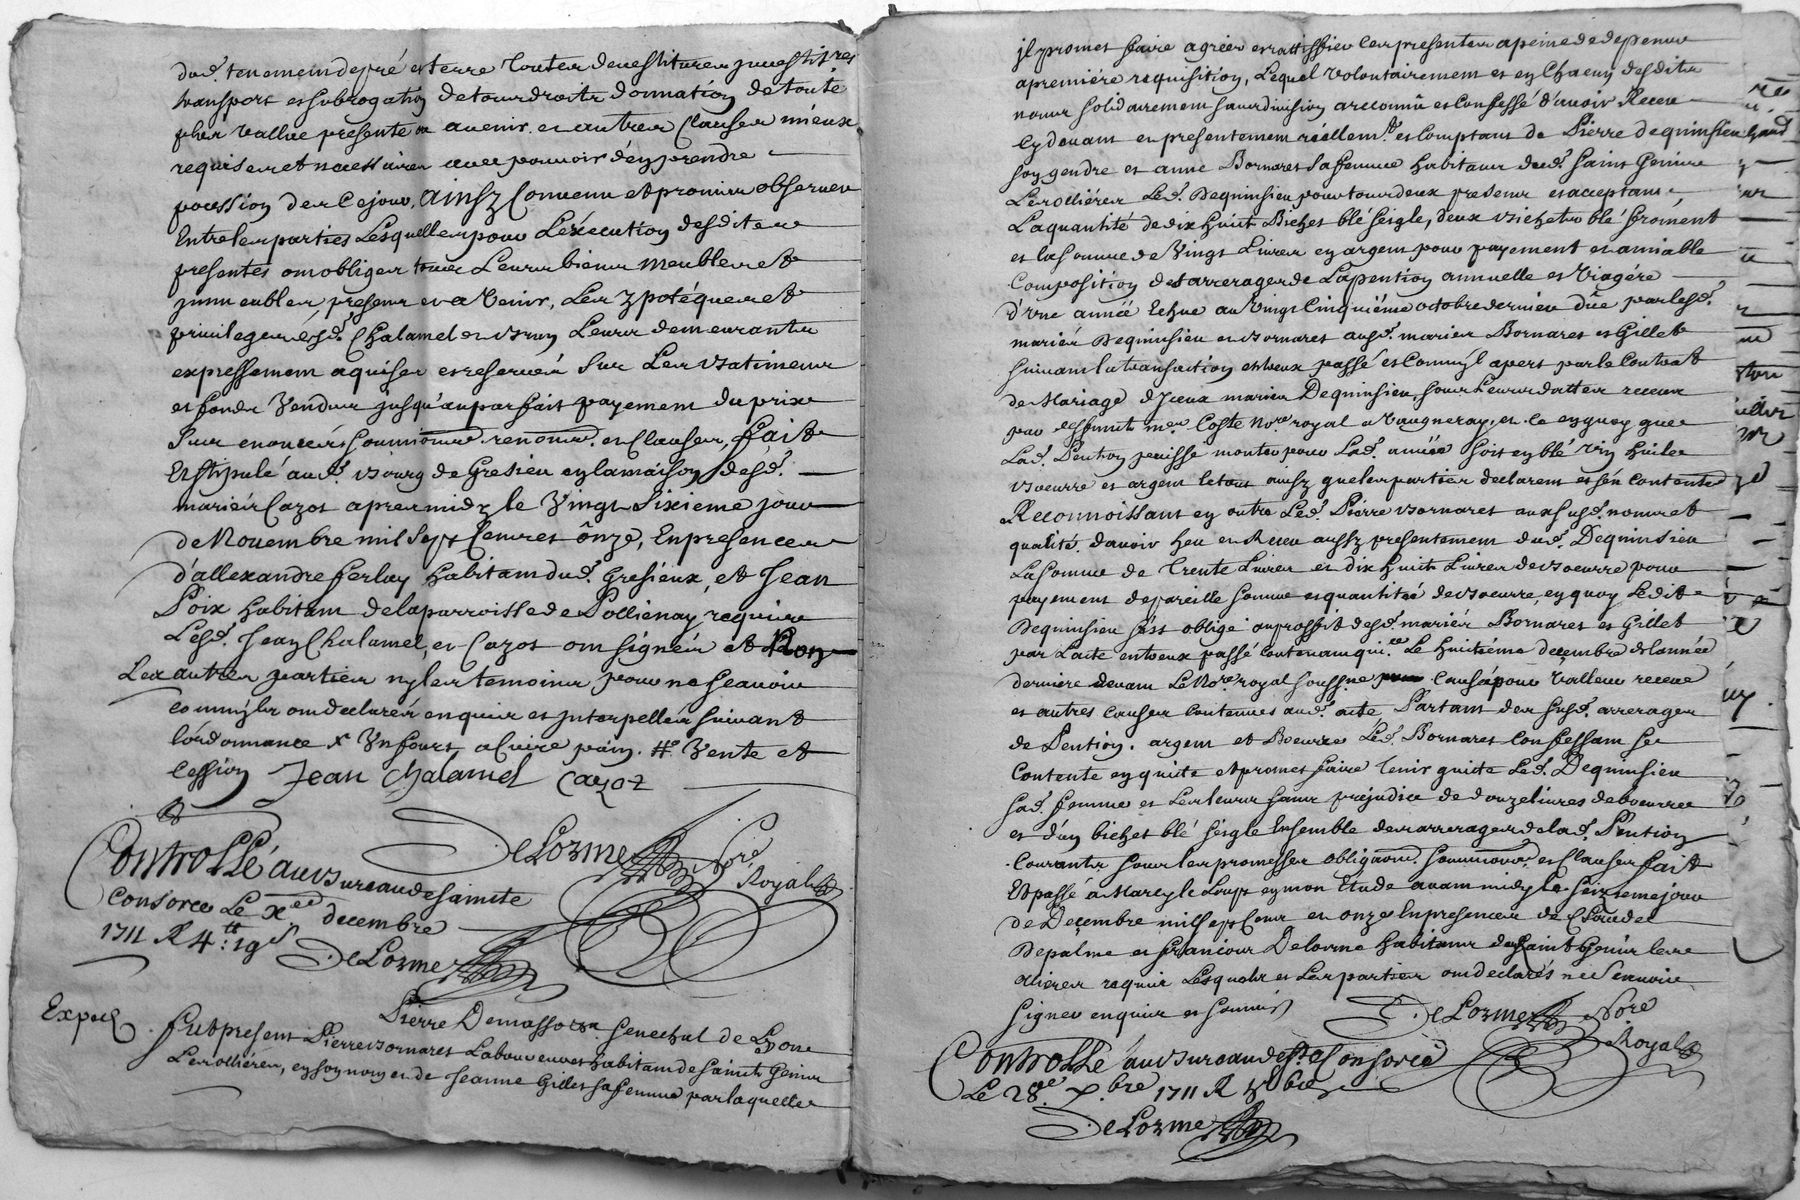 dud. tenement de pré et terre toutes devestitures investitures
transport et subrogation de tous droits donnation de toute
plus vallue presente ou avenir et autres clauses mieux
requises et necessaires avec pouvoir d'en prendre
pocession des ce jour, Ainsy Convenu et promis observer
Entre les parties Lesquelles pour L'éxécution desdites
presentes ont obligés tous Leurs biens meubles et
immeubles, presens et a Venir, Les ypotéques et
privileges esd. Chalamel et brun Leurs demeurants
expressement aquises et reservés Sur Les batimens
et fonds Vendus jusqu'au parfait payement du prix
Sus enoncés soumions. renons. et Clauses, fait
Et stipulé aud. bourg de Gresieu en la maison desd.
mariés Cazot apres midy le Vingt Sixieme jour
de Novembre mil Sept Cents et ônze, En presence
d'allexandre ferlay habitant dud. Gresieux, et Jean
Poix habitant de la parroisse de Pollienay, requis
Lesd. Jean Chalamel, et Cazot ont signés et Non
Les autres parties ny les temoins pour ne sçavoir
comm'ils ont declarés enquis et interpellés suivant
l'ordonnance x Un fourt a Cuire pain. #. Vente et
Cession Jean Chalamel Cayot
DeLorme Nore Royal
Controllé au bureau de Sainte
Consorce Le xe. decembre
1711 R 4tt: 19s
DeLorme
Exped
Pierre Demasso Senechal de Lyon
fut present Pierre bornares Laboureur et habitant de Saint Genis
Lerollières, en son nom et de Jeanne Gillet sa femme par laquelle
il promet faire agréer et rattiffier Ces presentes a peine de depens
a premiére requisition, Lequel volontairement et en Chacun desdits
noms solidairement sans division a reconnû et Confessé d'avoir Receu
Cy devant et presentement réellemt. et Comptant de Pierre dequinsieu
son gendre et anne Bornares sa femme habitans dud. Saint Genis
Lerolliéres Led. Dequinsieu pour tous deux present et acceptant,
La quantité de dix huit Bichet blé seigle, deux bichets blé froment
et la somme de Vingt Livres en argent pour payement et amiable
Composition des arrerages de La pention annuelle et Viagére
d'Une année Echue au Vingt Cinquiéme octobre dernier dûe par lesd.
mariés Dequinsieu et bornares ausd. mariés Bornares et Gillet
suivant la transaction entreux passé et Comm'il apert par le Contrat
de Mariage d'Iceux mariés Dequinsieu, sous Leurs dattes receus
par deffunt me. Coste Nore. royal a Vaugneray, et ce en quoy que
Lad. Pention puisse monter pour Lad. année soit en blé Vin huile
beurre et argent le tout ainsy que les parties declarent et s'en contentes
Reconnoissant en outre Led. Pierre bornares aux susd. noms et
qualité. d'avoir heu et Receu aussy presentement dud. Dequinsieu
La somme de Trente Livres et dix huit Livres de beurre pour
payement de pareille somme et quantité de beurre, en quoy Ledit
Dequinsieu s'est obligé au proffit desd. mariés Bornares et Gillet
par L'acte entreux passé contenant quice. Le huitiéme decembre de l'année
derniere devant Le Nore. royal soussne Causé pour Valleur receue
et autres Causes contenues aud. acte Partant des susd. arrerages
de Pention. argent et Beurre Led. Bornares Confessant se
Contente en quitte et promet faire tenir quitte Led. Dequinsieu
sad. femme et Les leurs sans prejudice de douze livres de beurre
et d'un bichet blé séigle Ensemble des arrerages de lad. Pention
Courante sous les promesses obligaons. soumions. et Clauses fait
Et passé a Marcy le Loup en mon Etude avant midy Le Seizieme jour
de Décembre mil sept Cent et onze En presence de Claude
Depalme et françois Delorme habitans de Saint Genis Le
ollieres requis Lesquels et Les parties ont declarés ne Scavoir
signer enquis et sommés
DeLorme Nore
Royal
Controllé au bureau de Ste Consorce
Le 28e. Xbre 1711 R
DeLorme